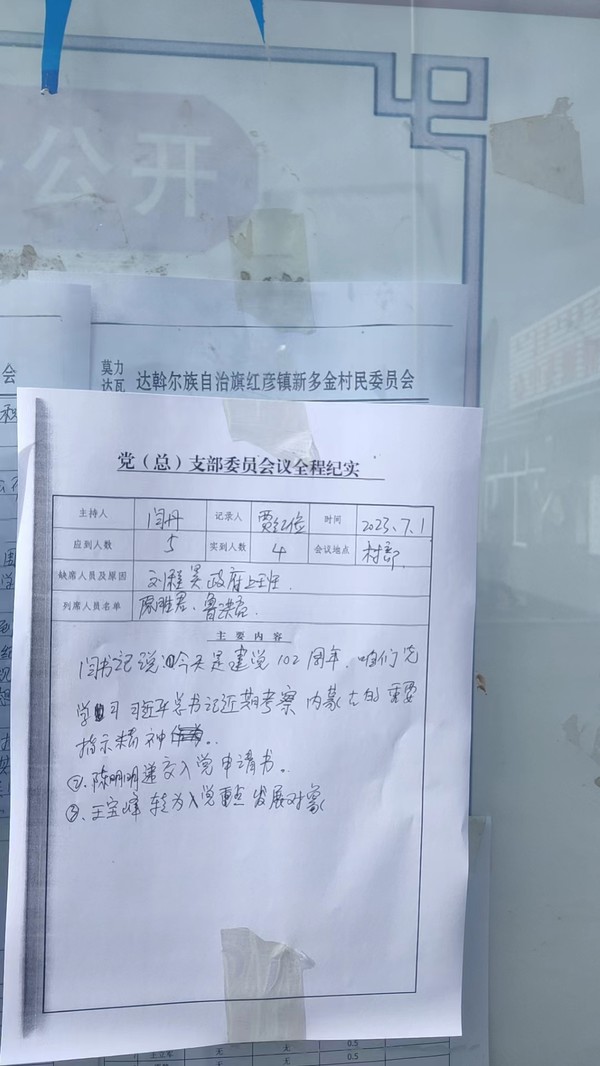 公开
莫力
达瓦 达斡尔族自治旗红彦镇新多金村民委员会
会
党（总）支部委员会议全程纪实
主持人 闫丹 记录人 时间 2023.7.1
应到人数 5 实到人数 4 会议地点 村部
缺席人员及原因 政府上班
列席人员名单 陈胜君、
主要内容
闫书记说①今天是建党102周年，咱们先
学习习近平总书记近期考察内蒙古的重要
指示精神
②、陈明明递交入党申请书。
③、王宝峰转为入党重点发展对象
无 无 0.5
无 无 0.5